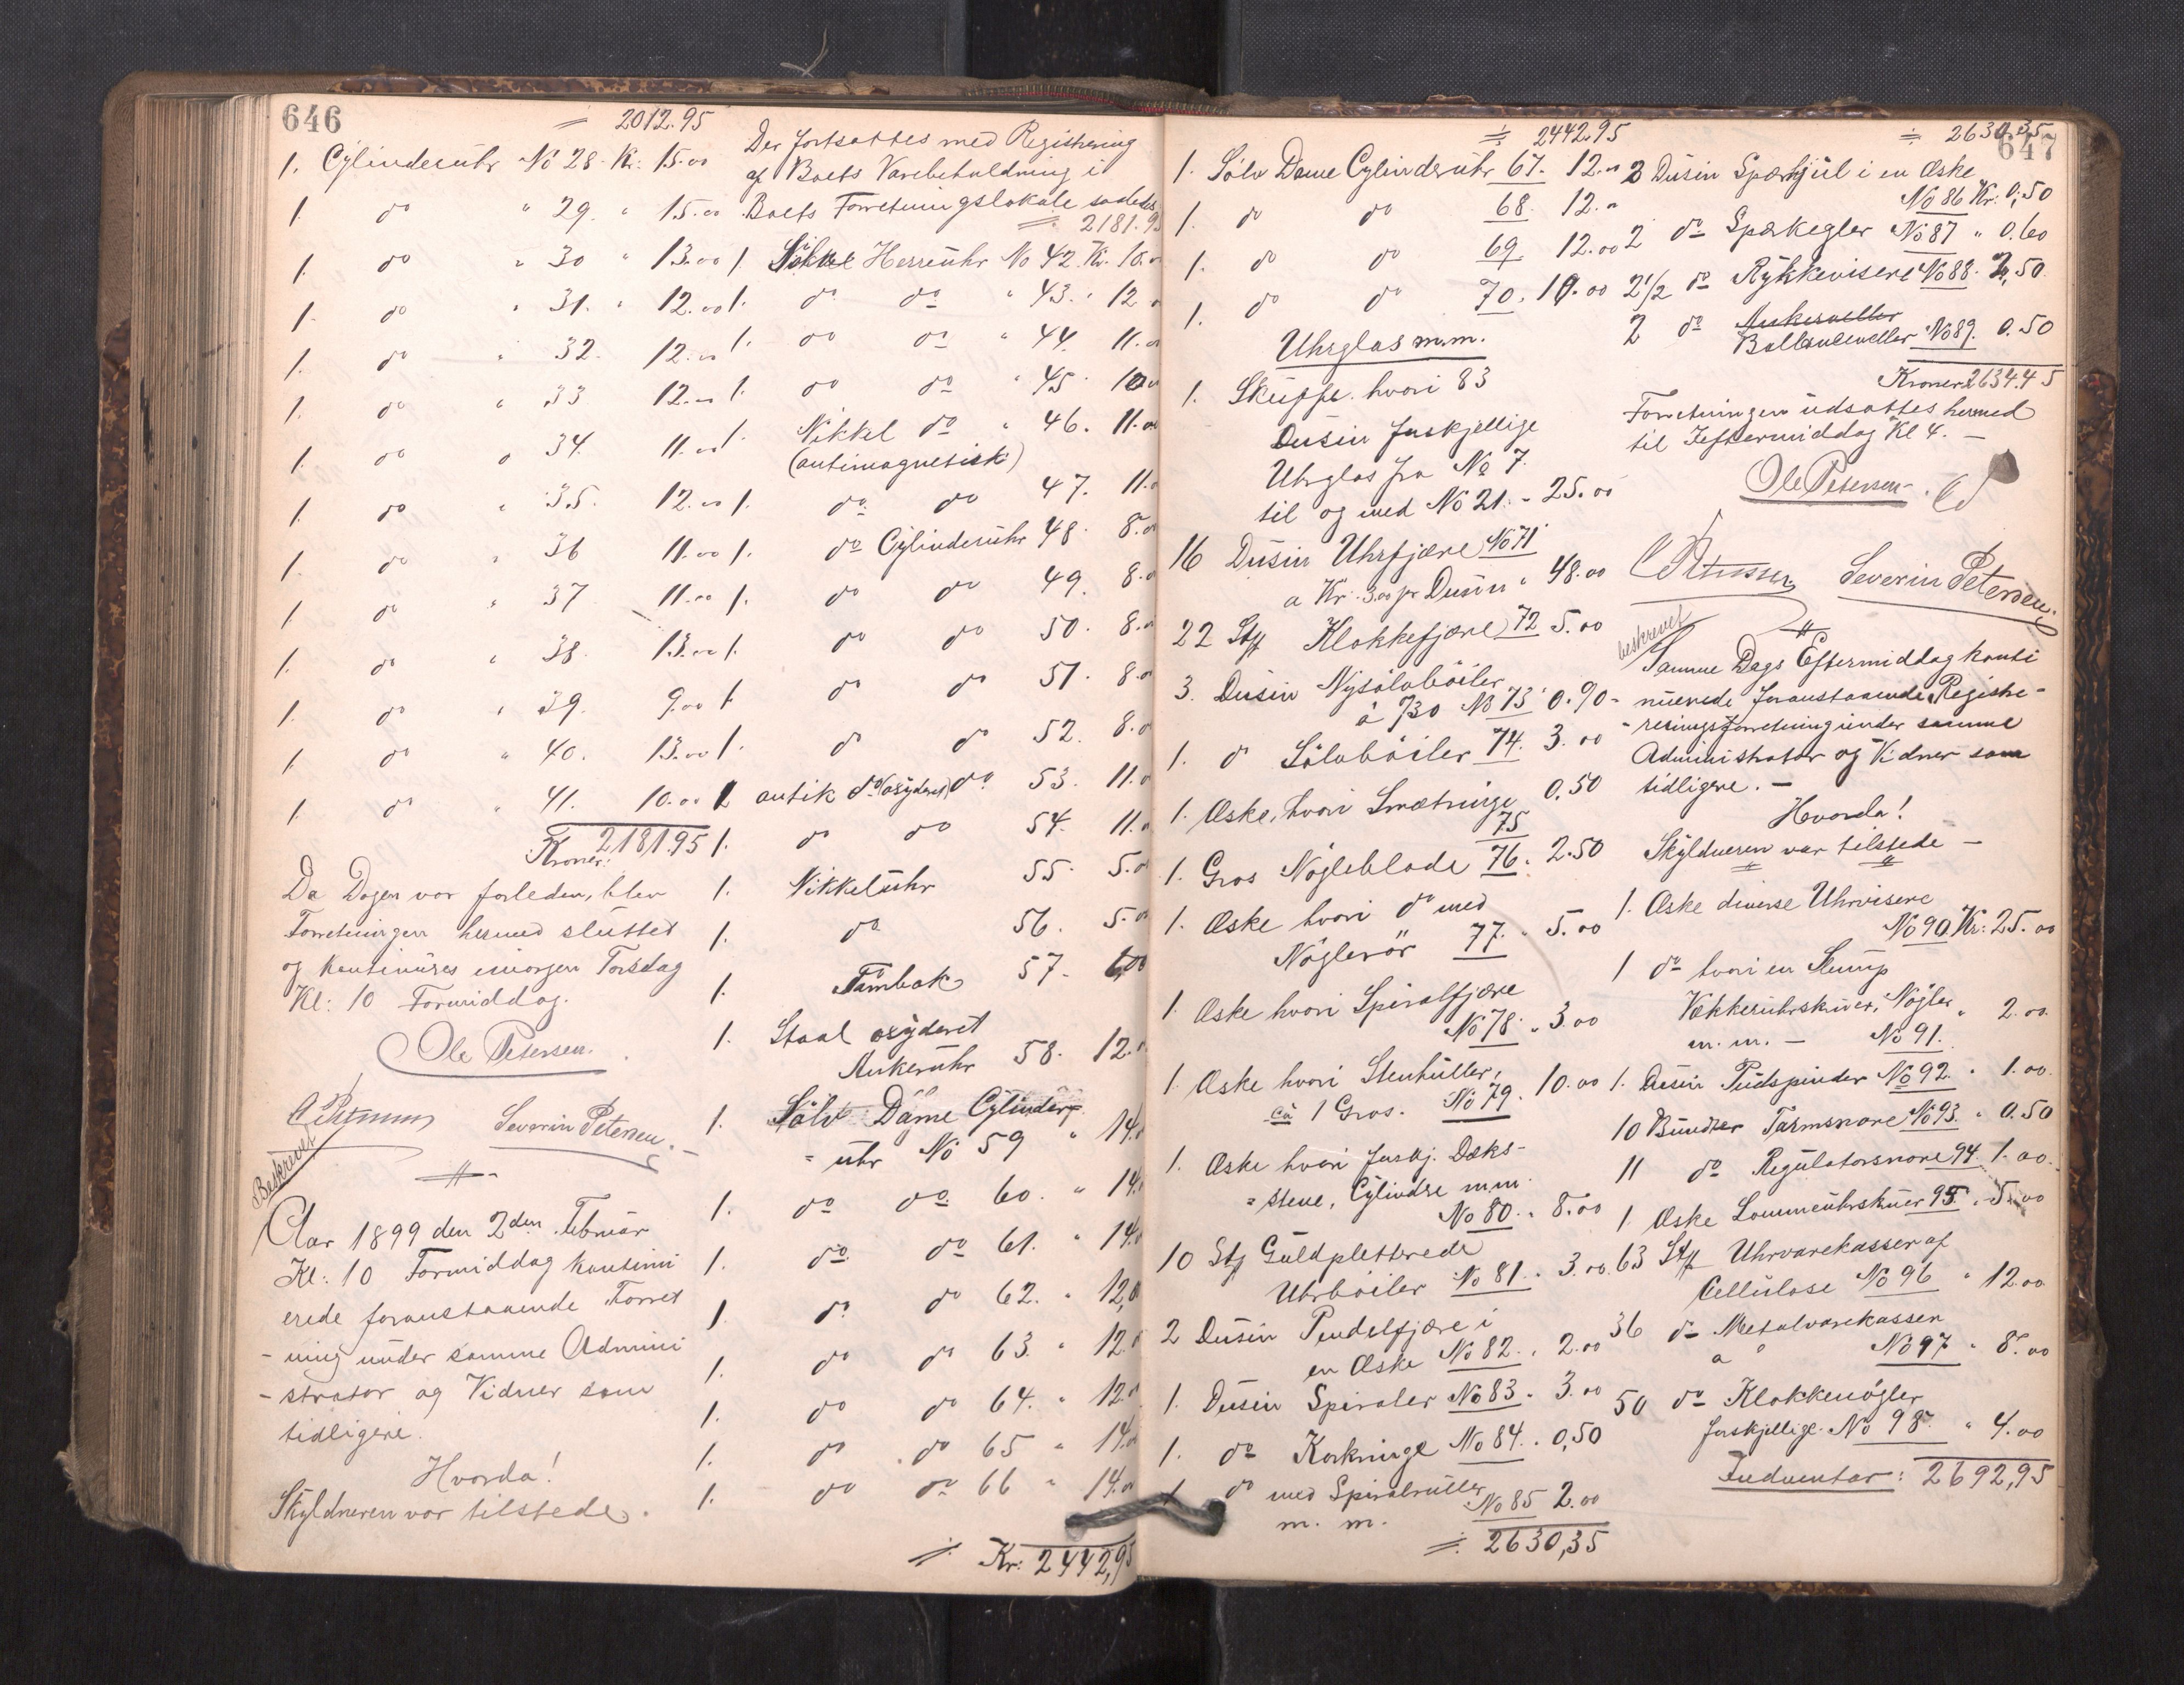 646
÷ 2012.95
1. Cylinderuhr No 28. Kr. 15.00
1. do " 29. " 15.00
1. do " 30 " 13.00
1. do " 31. " 12.00
1. do " 32. 12.00
1. do " 33 12.00
1. do " 34. 11.00
1. do " 35. 12.00
1. do " 36 11.00
1. do " 37 11.00
1. do " 38. 13.00
1. do " 39. 9.00
1. do " 40. 13.00
1. do " 41. 10.00
Kroner: 2181.95
Da Dagen var forleden, blev
Forretningen hermed sluttet
og kontinures imorgen Torsdag
Kl: 10 Formiddag.
Ole Petersen.
Severin Petersen
Beskrevet
Aar 1899 den 2den Februar
Kl: 10 Formiddag kontinu
erede foranstaaende Forret
-ning under samme Admini
-strator og Vidner som
tidligere.
Hvorda!
Skyldneren var tilstede.
Der fortsattes med Registrering
af Boets Varebeholdning i
Boets Forretningslokale saaledes
÷ 2181.95
1. Sölv Herreuhr No 42. Kr. 10.00
1. do do " 43. " 12
1. do do " 44. 11.00
1. do do " 45. 10.00
1. Nikkel do " 46. 11.00
(antimagnetisk)
1. do do 47. 11.0
1. do Cylinderuhr 48. 8.00
1. do do 49. 8.0
1. do do 50. 8.0
1. do do 51. 8.0
1. do do 52. 8.0
1 antik do (oxyderet) do 53. 11.0
1. do do 54. 11.0
1. Nikkeluhr 55. 5.0
1. do 56. 5.0
1. Tambak 57. 6,00
1. Staal oxyderet
Ankeruhr 58. 12.0
1. Sölv Dame Cylinder
= uhr No 59 " 14.0
1. do do 60. " 14.
1. do do 61. " 14.0
1. do do 62. " 12,0
1. do do 63. " 12.0
1. do do 64. " 12.0
1. do do 65 " 14.00
1. do do 66 " 14.00
÷ Kr: 2442,95
÷ 2442.95
1. Sölv Dame Cylinderuhr 67. 12.00
1. do do 68. 12.00
1. do do 69. 12.00
1. do do 70. 10.00
Uhrglas m.m.
1. Skuffe hvori 83
Dusin forskjellige
Uhrglas fra No 7
til og med No 21. " 25.00
16 Dusin Uhrfjære No 71
a Kr. 3.00 pr Dusin " 48.00
22 Stk Klokkefjære 72 5.00
3. Dusin Nysølvböiler
á /30 No 73 0.90
1. do Sölvböiler 74. 3.00
1. Æske, hvori Smætringe 0,50
75
1. Gros Nögleblade 76. 2.50
1. Æske hvori do med
Nöglerör 77. " 5.00
1 Æske hvori Spiralfjære
No 78. " 3.00
1. Æske hvori Stenhuller,
ca 1 Gros. No 79. 10.00
1. Æske hvori forskj. Dæks-
= stene, Cylindre m.m.
No 80. " 8.00
10 Stk Guldpletterede
Uhrböiler No 81. " 3.00
2 Dusin Pendelfjære i
en Æske No 82. " 2.00
1. Dusin Spiraler No 83. " 3.00
1. do Korkringe No 84. " 0,50
1 do med Spiralruller
m. m. No 85 2.00
÷ 2630,35
647
÷ 2630.35
2 Dusin Spærhjul i en Æske
No 86 Kr. 0,50
2 do Spærkegler No 87 " 0.60
2 1/2 do Rykkevisere No 88. 2,50
2 do Ankerveller
Ballanceveller No 89. 0.50
Kroner 2634.45
Forretningen udsattes hermed
til Eftermiddag Kl 4. —
Ole Petersen
Severin Petersen
beskrevet
Samme Dags Eftermiddag konti
nuerede foranstaaende Registre-
-ringsforretning under samme
Administrator og Vidner som
tidligere. —
Hvorda!
Skyldneren var tilstede —
1. Æske diverse Uhrvisere
No 90 Kr: 25.00
1 do hvori en Slump
Vækkeruhrskruer, Nøgler " 2.00
m. m. — No 91.
1. Dusin Pudspinder No 92. " 1.00
10 Bundter Tarmsnore No 93. " 0.50
11 do Regulatorsnore 94. 1.00
1. Æske Lommeuhrskruer 95. " 5.00
63 Stk Uhrvarekasser af
Cellulose No 96 " 12.00
36 do Metalvarekasser
No 97 " 8.00
50 do Klokkenøgler
forskjellige No 98 " 4.00
Indventar: 2692,95